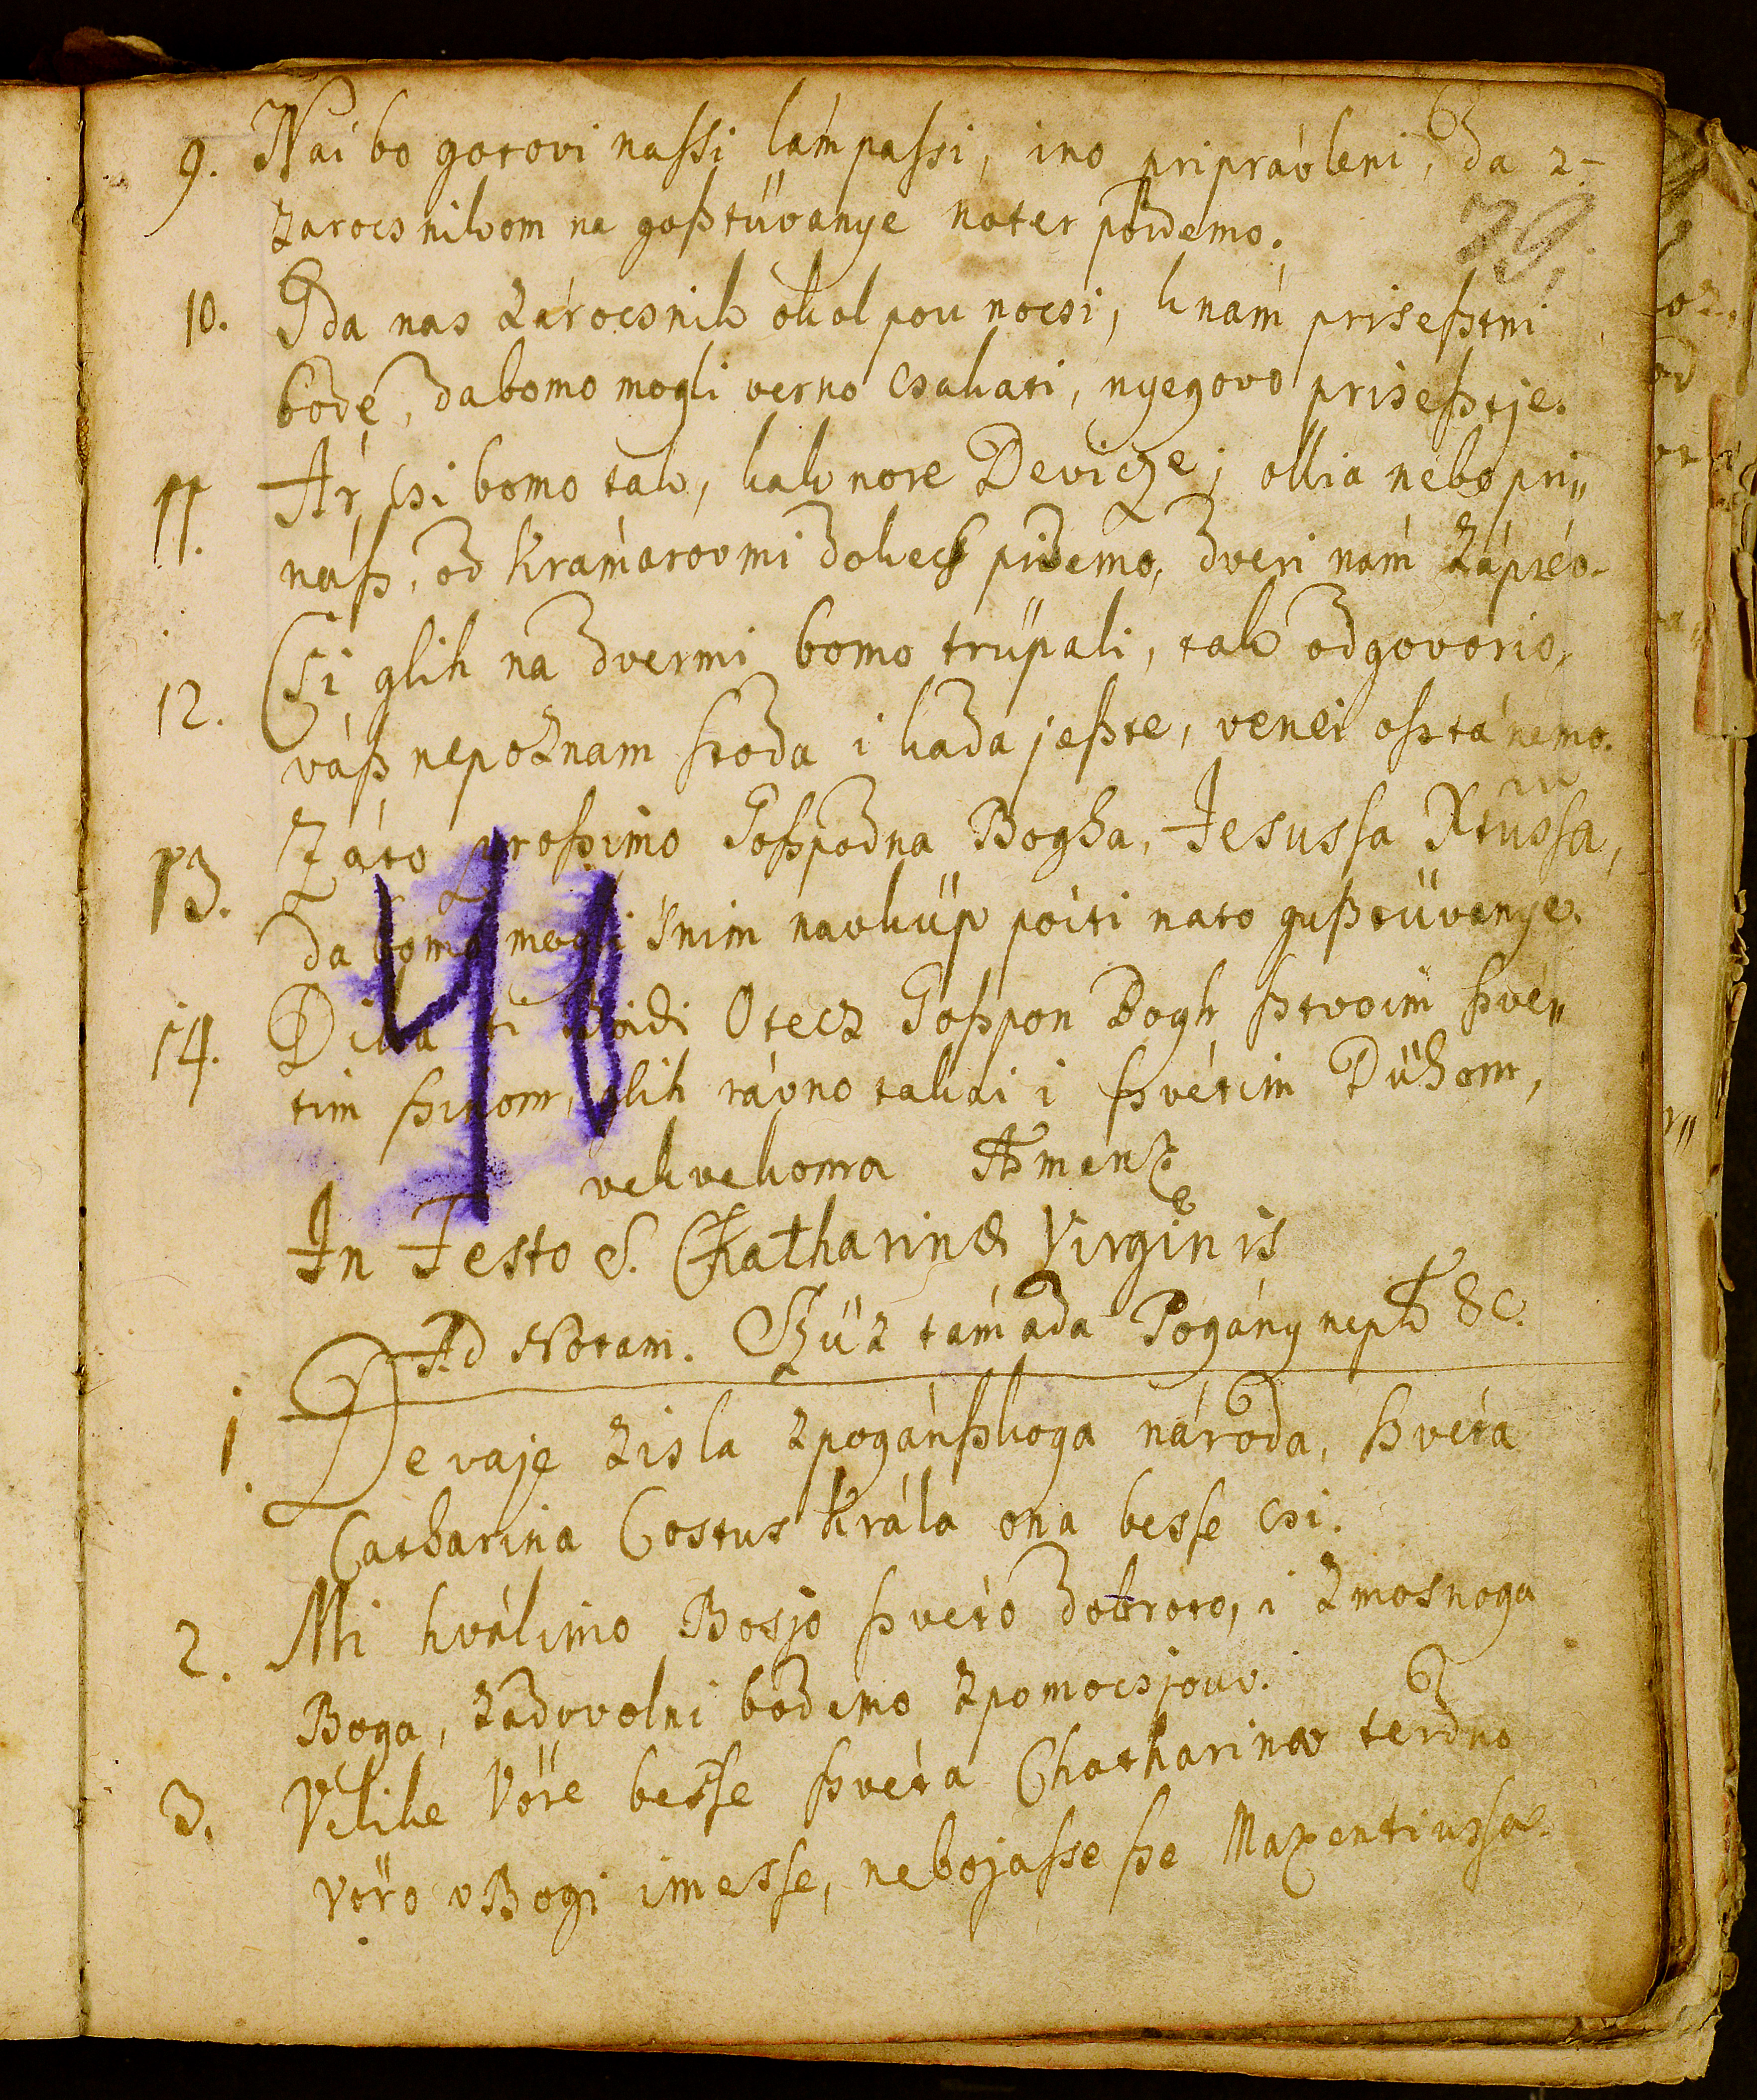 9. Nai bo gotovi nassi lámpassi, ino pripraúleni, da z-
79.
zarocsnikom na goßtüvanye noter poidemo.
10. Gda nas Zárocsnik okol pou nocsi, knám prisesßtni
bode, da bomo mogli verno csakati, nyegovo prisesßtje.
11. Ár, csi bomo tak, kak nore Deviczé; ollia nébo pri„
náß, od Kramárov mi dokecs pridemo, dveri nám Zápréo.
12. Csi glih na dvermi bomo trüpali, tak odgovorio,
váß nepoznam ßtoda i kada jeßte, venei oßtánemo.
13. Záto proßimo Goßpodna Bogha, Jesussa Xtussa,
da bomo mogli žnim navküp poiti nato gußtüvanye.
14. Dika ti boidi Otecz Goßpon Bogh ßtvoim ßvé„
tim ßinom, glih rávno takai i ßvétim Dühom,
vekvekoma Amen
48
In Festo S. Chatharinæ Virginis
Ad Notam. Szüz támada Pogány népb &c.
1. Devaje zisla zpogánßkoga národa, ßvéta
Catharina Costus Krála ona besse csi.
2. Mi hválimo Bosjo ßvéto dobroto, i zmosnoga
Boga, zadovolni bodemo zpomocsjouv.
3. Velike Vöre besse ßvéta Chatharina terdno
vöro vBogi imesse, nebojasse ße Maxentiussa.